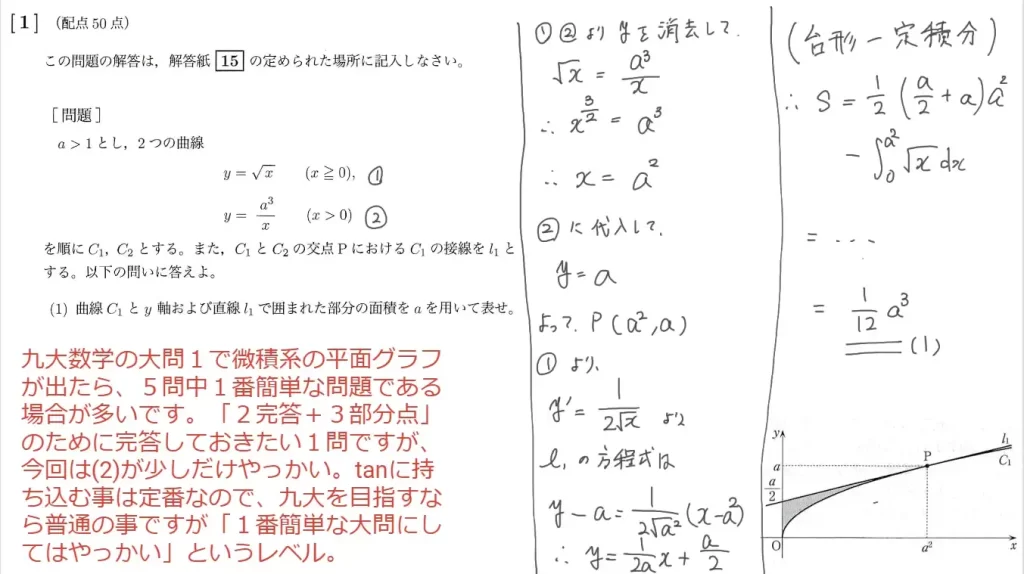 [1] (配点50点)
この問題の解答は,解答紙 15 の定められた場所に記入しなさい。
[問題]
a > 1 とし,2つの曲線
y = √x (x ≧ 0), ①
y = a³/x (x > 0) ②
を順に C₁, C₂ とする。また,C₁ と C₂ の交点 P における C₁ の接線を l₁ と
する。以下の問いに答えよ。
(1) 曲線 C₁ と y 軸および直線 l₁ で囲まれた部分の面積を a を用いて表せ。
九大数学の大問1で微積系の平面グラフ
が出たら、5問中1番簡単な問題である
場合が多いです。「2完答+3部分点」
のために完答しておきたい1問ですが、
今回は(2)が少しだけやっかい。tanに持
ち込む事は定番なので、九大を目指すな
ら普通の事ですが「1番簡単な大問にし
てはやっかい」というレベル。
①②より y を消去して.
√x = a³/x
∴ x^(3/2) = a³
∴ x = a²
②に代入して.
y = a
よって. P(a², a)
①より.
y' = 1/(2√x) より
l₁ の方程式は
y − a = 1/(2√a²) (x − a²)
∴ y = 1/(2a) x + a/2
(台形 − 定積分)
∴ S = 1/2 (a/2 + a) a²
− ∫₀^(a²) √x dx
= ...
= 1/12 a³
(1)
y
l₁
C₁
P
a
a/2
O
a²
x